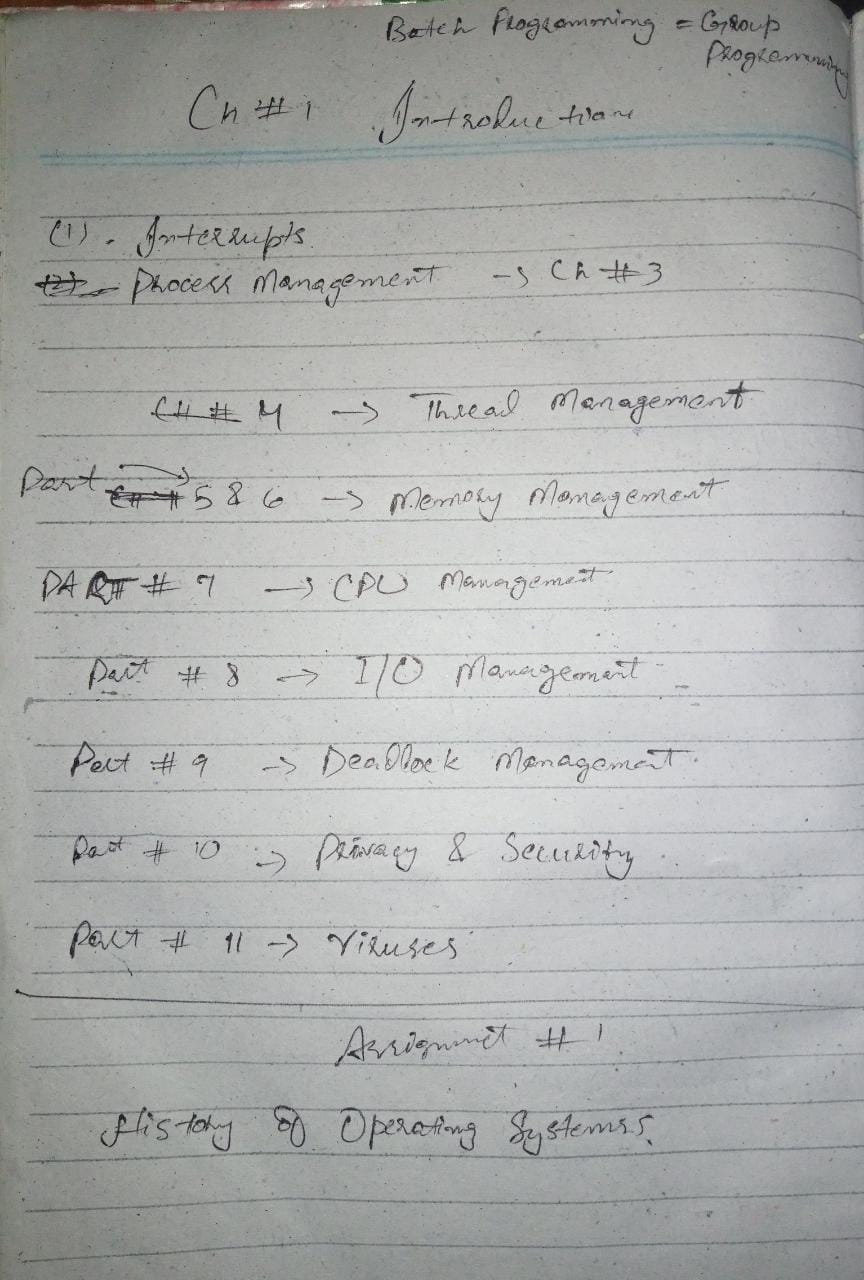 Batch Programming = Group
Programming
Ch # 1 Introduction
(1). Interrupts
(2). Process Management → Ch # 3
CH # 4 → Thread Management
Part CH # 5 & 6 → Memory Management
PART # 7 → CPU Management
Part # 8 → I/O Management
Part # 9 → Deadlock Management.
Part # 10 → Privacy & Security.
Part # 11 → Viruses
Assignment # 1
History of Operating Systems.